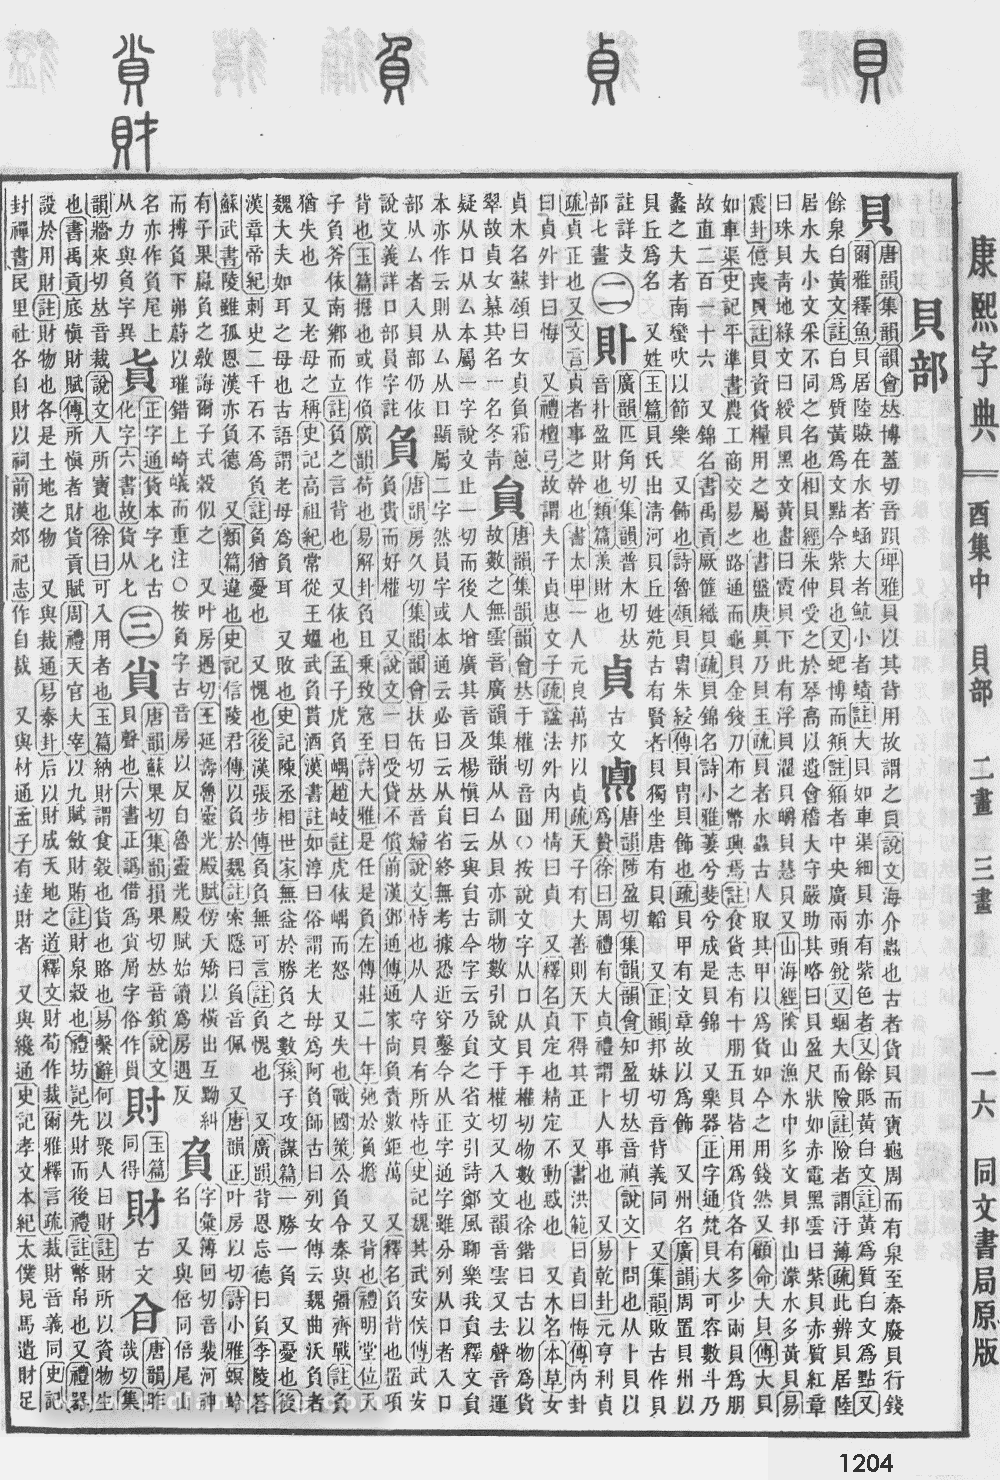 貝 貞 負 貟 財
康熙字典 酉集中 貝部 二畫 三畫 一六 同文書局原版
貝部
貝 唐韻集韻韻會𠀤博蓋切音䟺埤雅貝以其背用故謂之貝說文海介蟲也古者貨貝而寶龜周而有泉至秦廢貝行錢
爾雅釋魚貝居陸贆在水者蜬大者魧小者鰿註大貝如車渠細貝亦有紫色者又餘貾黃白文註黃爲質白文爲點又
餘泉白黃文註白爲質黃爲文點今紫貝也又蚆博而頯註頯者中央廣兩頭銳又蜠大而險註險者謂汙薄疏此辨貝居陸
居水大小文采不同之名也相貝經朱仲受之於琴高以遺會稽大守嚴助其略曰貝盈尺狀如赤電黑雲曰紫貝赤質紅章
曰珠貝靑地綠文曰綬貝黑文黃畫曰霞貝下此有浮貝濯貝皭貝慧貝又山海經隂山漁水中多文貝邽山濛水多黃貝易
震卦億喪貝註貝資貨糧用之屬也書盤庚具乃貝玉疏貝者水蟲古人取其甲以爲貨如今之用錢然又顧命大貝傳大貝
如車渠史記平準書農工商交易之路通而龜貝金錢刀布之幣興焉註食貨志有十朋五貝皆用爲貨各有多少兩貝爲朋
故直二百一十六 又錦名書禹貢厥篚織貝疏貝錦名詩小雅萋兮斐兮成是貝錦 又樂器正字通梵貝大可容數斗乃
蠡之大者南蠻吹以節樂 又飾也詩魯頌貝冑朱綅傳貝冑貝飾也疏貝甲有文章故以爲飾 又州名廣韻周置貝州以
貝丘爲名 又姓玉篇貝氏出淸河貝丘姓苑古有賢者貝獨坐唐有貝韜 又正韻邦妹切音背義同 又集韻敗古作貝
註詳攴部七畫
二
𧴤 廣韻匹角切集韻普木切𠀤音扑盈財也類篇羨財也
貞 古文鼑 唐韻陟盈切集韻韻會知盈切𠀤音禎說文卜問也从卜貝以爲贄徐曰周禮有大貞禮謂卜人事也 又易乾卦元亨利貞
疏貞正也又文言貞者事之幹也書太甲一人元良萬邦以貞疏天子有大善則天下得其正 又書洪範曰貞曰悔傳內卦
曰貞外卦曰悔 又禮檀弓故謂夫子貞惠文子疏諡法外內用情曰貞 又釋名貞定也精定不動惑也 又木名本草女
貞木名蘇頌曰女貞負霜蔥翠故貞女慕其名一名冬靑
貟 唐韻集韻韻會𠀤于權切音圓○按說文字从口从貝于權切物數也徐鍇曰古以物爲貨故數之無雲音廣韻集韻从厶从貝亦訓物數引說文于權切又入文韻音雲又去聲音運
疑从口从厶本屬一字說文止一切而後人增廣其音及楊愼曰云與貟古今字云乃貟之省文引詩鄭風聊樂我貟釋文貟
本亦作云則从厶从口顯屬二字然員字或本通云必曰云从貟省終無考據恐近穿鑿今从正字通字雖分列从口者入口
部从厶者入貝部仍依說文義詳口部員字註
負 唐韻房久切集韻韻會扶缶切𠀤音婦說文恃也从人守貝有所恃也史記魏其武安侯傳武安負貴而好權 又說文一曰受貸不償前漢鄧通傳通家尚負責數鉅萬 又釋名負背也置項
背也玉篇擔也或作偩廣韻荷也易解卦負且乗致寇至詩大雅是任是負左傳莊二十年弛於負擔 又背也禮明堂位天
子負斧依南鄉而立註負之言背也 又依也孟子虎負嵎趙岐註虎依嵎而怒 又失也戰國策公負令秦與彊齊戰註負
猶失也 又老母之稱史記高祖紀常從王媼武負貰酒漢書註如淳曰俗謂老大母爲阿負師古曰列女傳云魏曲沃負者
魏大夫如耳之母也古語謂老母爲負耳 又敗也史記陳丞相世家無益於勝負之數孫子攻謀篇一勝一負 又憂也後
漢章帝紀刺史二千石不爲負註負猶憂也 又愧也後漢張步傳負負無可言註負愧也 又廣韻背恩忘德曰負李陵答
蘇武書陵雖孤恩漢亦負德 又類篇違也史記信陵君傳以負於魏註索隱曰負音佩 又唐韻正叶房以切詩小雅螟蛉
有子果蠃負之敎誨爾子式穀似之 又叶房遇切王延壽魯靈光殿賦傍夭矯以橫出互黝糾而搏負下岪蔚以璀錯上崎嶬而重注○按負字古音房以反自魯靈光殿賦始讀爲房遇反
𧴥 字彙簿回切音裴河神名 又與倍同倍尾山名亦作負尾上从力與負字異
𧴦 正字通貨本字七古化字六書故貨从七
三
𧴪 唐韻蘇果切集韻損果切𠀤音鎖說文貝聲也六書正譌借爲𧴪屑字俗作貟
財 玉篇同得
財 古文𠕒 唐韻昨哉切集韻牆來切𠀤音裁說文人所寶也徐曰可入用者也玉篇納財謂食穀也貨也賂也易繫辭何以聚人曰財註財所以資物生
也書禹貢底愼財賦傳所愼者財貨貢賦周禮天官大宰以九賦斂財賄註財泉穀也禮坊記先財而後禮註幣帛也又禮器
設於用財註財物也各是土地之物 又與裁通易泰卦后以財成天地之道釋文財荀作裁爾雅釋言疏裁財音義同史記
封禪書民里社各自財以祠前漢郊祀志作自裁 又與材通孟子有達財者 又與纔通史記孝文本紀太僕見馬遺財足
1204